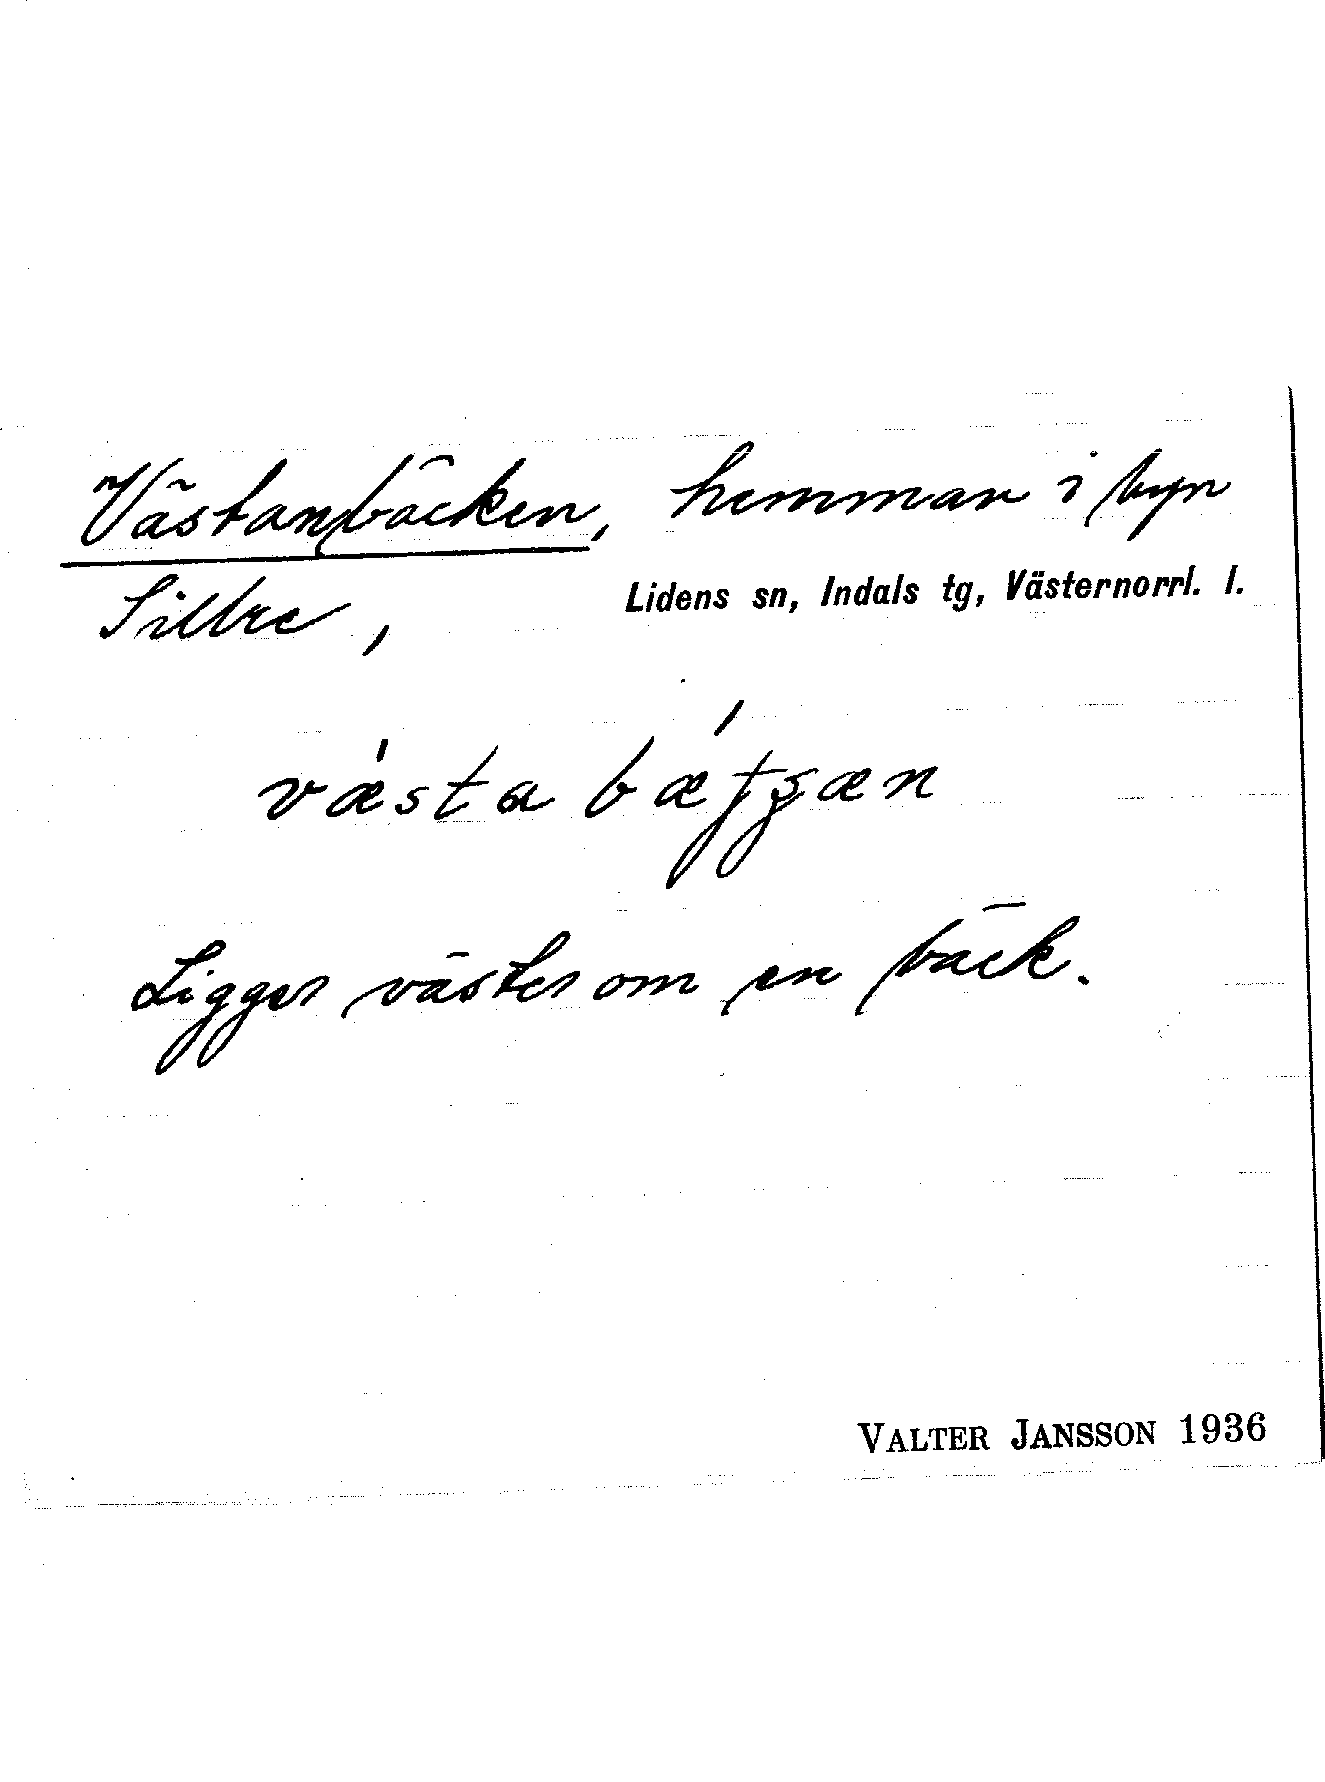 Västanbäcken, hemman i byn
Sillre, Lidens sn, Indals tg, Västernorrl. l.
væ̀sta bǽꞓꞓæn
Ligger väster om en bäck.
VALTER JANSSON 1936